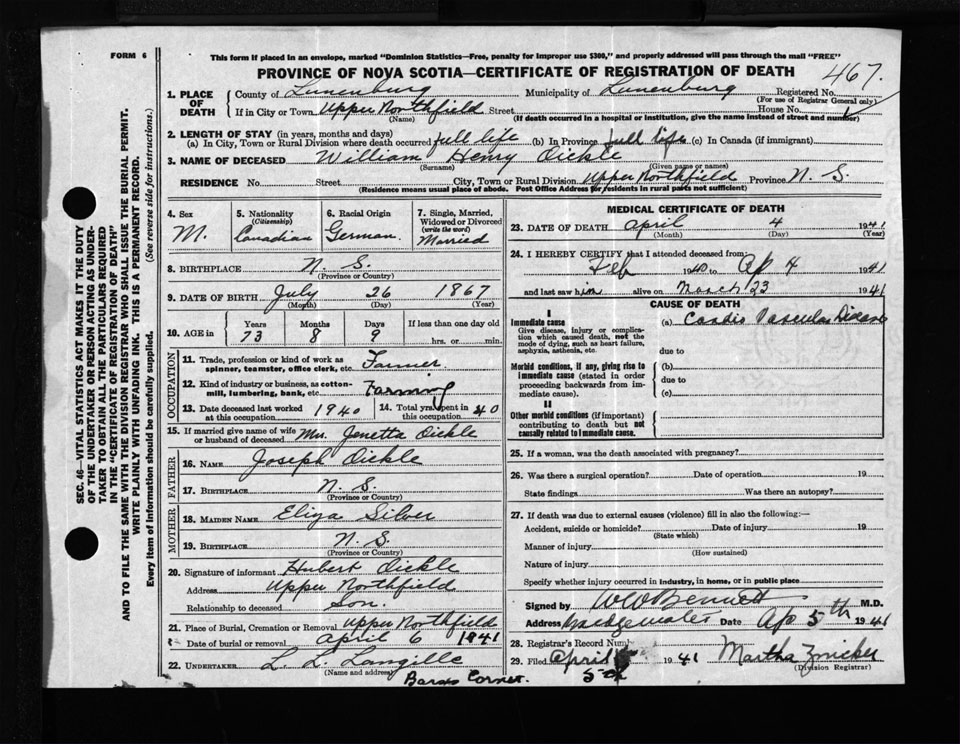 FORM 6
This form if placed in an envelope, marked "Dominion Statistics—Free, penalty for improper use $300," and properly addressed will pass through the mail "FREE"
PROVINCE OF NOVA SCOTIA—CERTIFICATE OF REGISTRATION OF DEATH
467.
1. PLACE OF DEATH
County of Lunenburg Municipality of Lunenburg Registered No.
(For use of Registrar General only)
If in City or Town Upper Northfield Street House No.
(Name) (If death occurred in a hospital or institution, give the name instead of street and number)
2. LENGTH OF STAY (in years, months and days)
(a) In City, Town or Rural Division where death occurred full life (b) In Province full life (c) In Canada (if immigrant)
3. NAME OF DECEASED William Henry Oickle
(Surname) (Given name or names)
RESIDENCE No. Street City, Town or Rural Division Upper Northfield Province N. S.
(Residence means usual place of abode. Post Office Address for residents in rural parts not sufficient)
4. Sex
M.
5. Nationality
(Citizenship)
Canadian
6. Racial Origin
German.
7. Single, Married, Widowed or Divorced
(write the word)
Married
8. BIRTHPLACE N. S.
(Province or Country)
9. DATE OF BIRTH July 26 1867
(Month) (Day) (Year)
10. AGE in Years Months Days If less than one day old
73 8 9 hrs. or min.
OCCUPATION
11. Trade, profession or kind of work as Farmer.
spinner, teamster, office clerk, etc.
12. Kind of industry or business, as cotton-
mill, lumbering, bank, etc. Farming
13. Date deceased last worked at this occupation 1940
14. Total yrs. spent in this occupation 40
15. If married give name of wife or husband of deceased Mrs. Jenetta Oickle
FATHER
16. NAME Joseph Oickle
17. BIRTHPLACE N. S.
(Province or Country)
MOTHER
18. MAIDEN NAME Eliza Silver
19. BIRTHPLACE N. S.
(Province or Country)
20. Signature of informant Hubert Oickle
Address Upper Northfield
Relationship to deceased Son.
21. Place of Burial, Cremation or Removal Upper Northfield
Date of burial or removal April 6 1941
22. UNDERTAKER L. L. Langille
(Name and address)
Barss Corner.
MEDICAL CERTIFICATE OF DEATH
23. DATE OF DEATH April 4 1941
(Month) (Day) (Year)
24. I HEREBY CERTIFY that I attended deceased from
Feb 1940 to Ap 4 1941
and last saw him alive on March 23 1941
CAUSE OF DEATH
I
Immediate cause
Give disease, injury or complica-
tion which caused death, not the
mode of dying, such as heart failure,
asphyxia, asthenia, etc.
(a) Cardio Vascular Disease
due to
Morbid conditions, if any, giving rise to
immediate cause (stated in order
proceeding backwards from im-
mediate cause).
(b)
due to
(c)
II
Other morbid conditions (if important)
contributing to death but not
causally related to immediate cause.
25. If a woman, was the death associated with pregnancy?
26. Was there a surgical operation? Date of operation 19
State findings Was there an autopsy?
27. If death was due to external causes (violence) fill in also the following:—
Accident, suicide or homicide? Date of injury 19
(State which)
Manner of injury
(How sustained)
Nature of injury
Specify whether injury occurred in industry, in home, or in public place
Signed by W W Bennett M.D.
Address Bridgewater Date Ap 5th 1941
28. Registrar's Record Number
29. Filed April 1941 Martha Zwicker
(Division Registrar)
SEC. 46—VITAL STATISTICS ACT MAKES IT THE DUTY
OF THE UNDERTAKER OR PERSON ACTING AS UNDER-
TAKER TO OBTAIN ALL THE PARTICULARS REQUIRED
IN THE "CERTIFICATE OF REGISTRATION OF DEATH"
AND TO FILE THE SAME WITH THE DIVISION REGISTRAR WHO SHALL ISSUE THE BURIAL PERMIT.
WRITE PLAINLY WITH UNFADING INK. THIS IS A PERMANENT RECORD.
Every item of information should be carefully supplied. (See reverse side for instructions.)